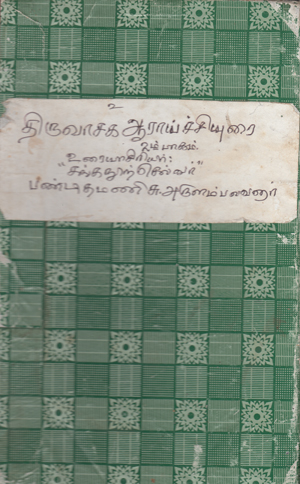 உ
திருவாசக ஆராய்ச்சியுரை
2ம் பாகம்.
உரையாசிரியர்:
"சங்கநூற்செல்வர்"
பண்டிதமணி சு அருளம்பலவனார்